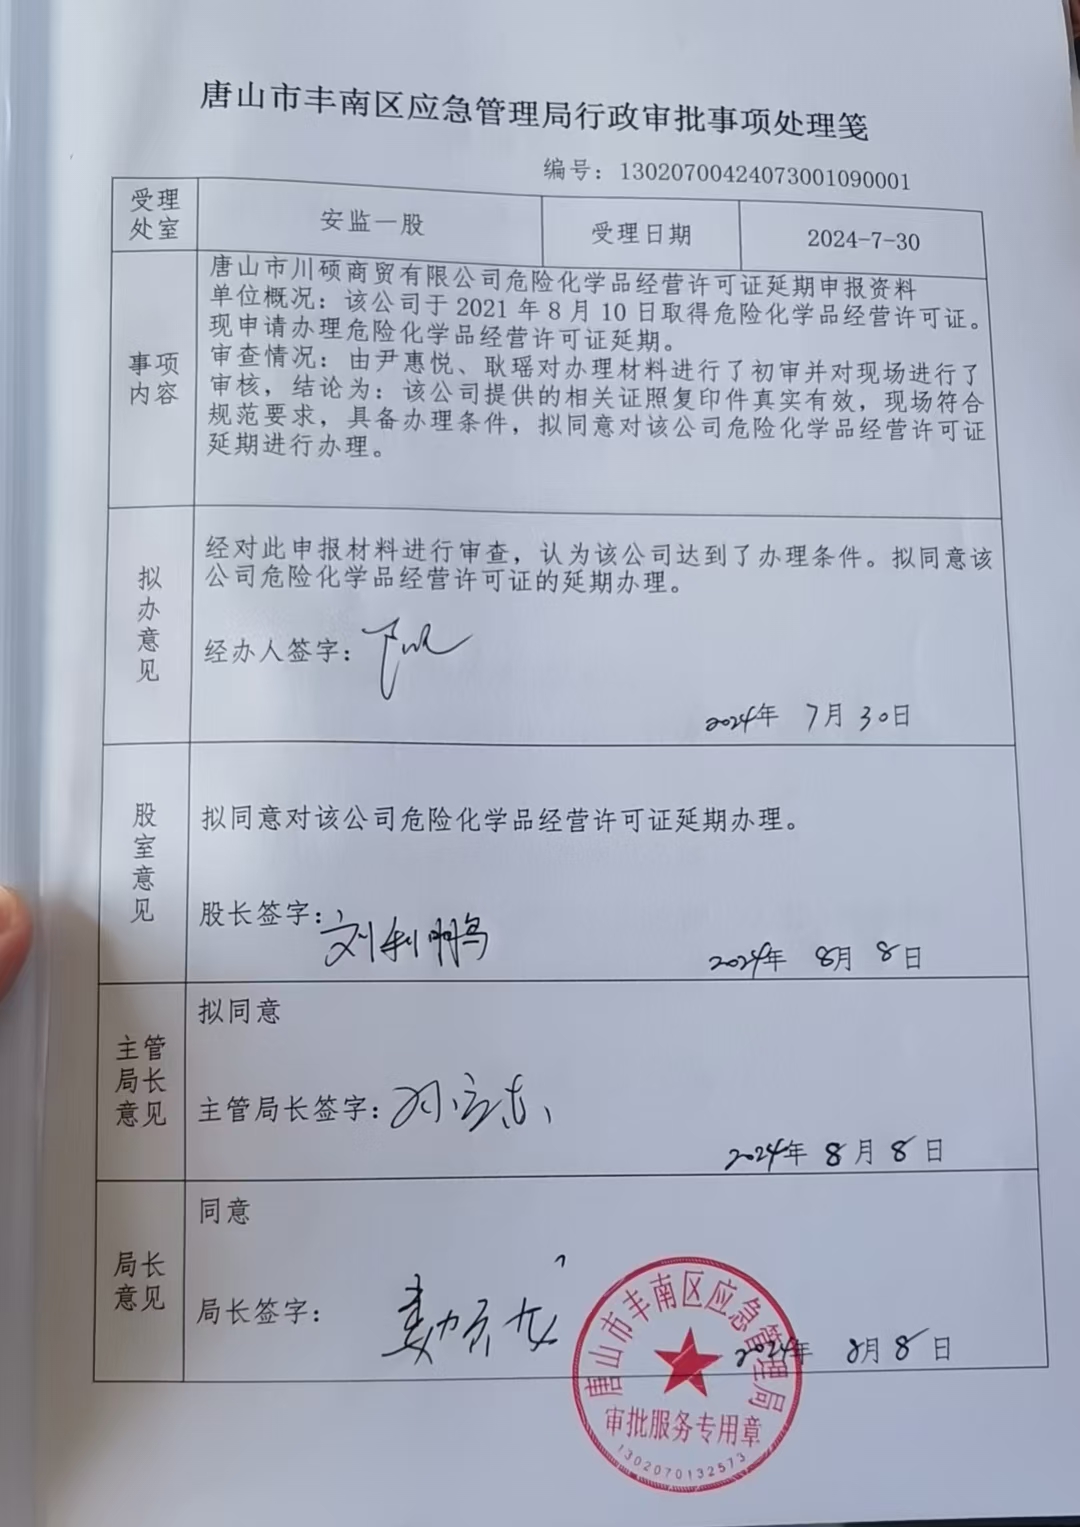 唐山市丰南区应急管理局行政审批事项处理笺
编号：13020700424073001090001
受理处室
安监一股
受理日期
2024-7-30
事项内容
唐山市川硕商贸有限公司危险化学品经营许可证延期申报资料
单位概况：该公司于 2021 年 8 月 10 日取得危险化学品经营许可证。
现申请办理危险化学品经营许可证延期。
审查情况：由尹惠悦、耿瑶对办理材料进行了初审并对现场进行了
审核，结论为：该公司提供的相关证照复印件真实有效，现场符合
规范要求，具备办理条件，拟同意对该公司危险化学品经营许可证
延期进行办理。
拟办意见
经对此申报材料进行审查，认为该公司达到了办理条件。拟同意该
公司危险化学品经营许可证的延期办理。
经办人签字：
2024年 7月 30日
股室意见
拟同意对该公司危险化学品经营许可证延期办理。
股长签字：刘利鹏
2024年 8月 8日
主管局长意见
拟同意
主管局长签字：
2024年 8月 8日
局长意见
同意
局长签字：
2024年 8月 8日
唐山市丰南区应急管理局
审批服务专用章
1302070132573